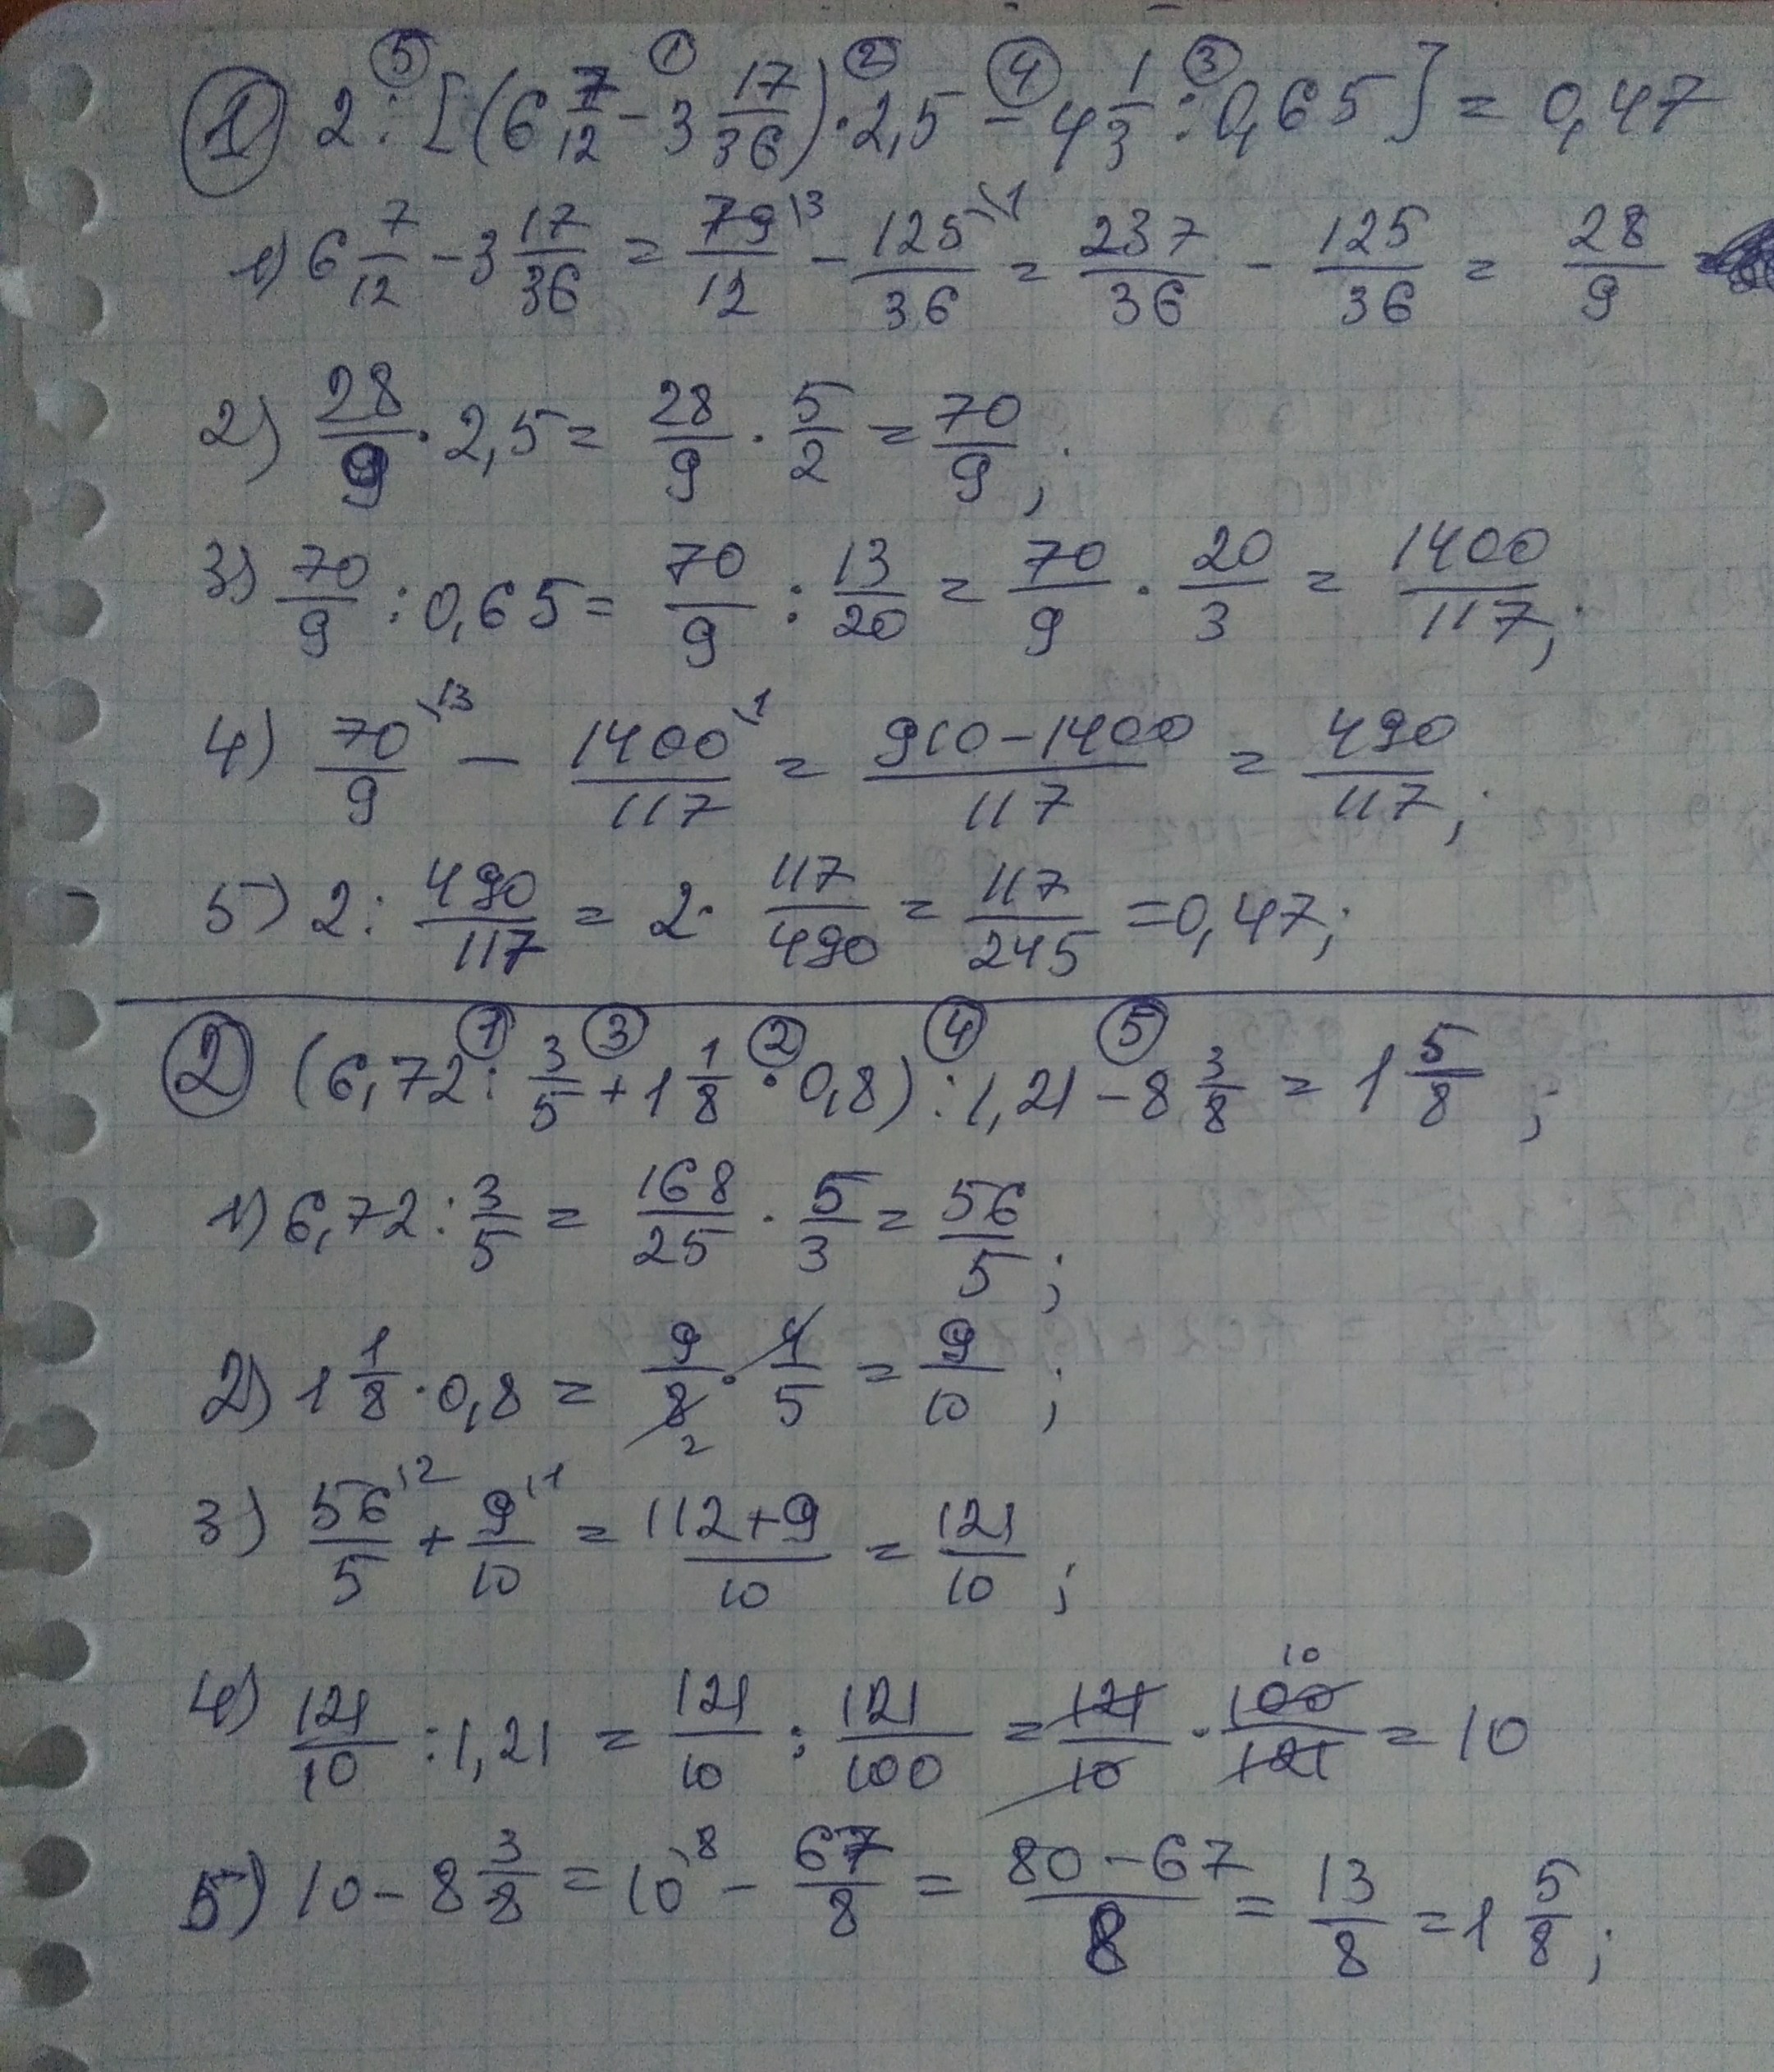 ① 2 : [(6 7/12 - 3 17/36) · 2,5 - 4 1/3 : 0,65] = 0,47
1) 6 7/12 - 3 17/36 = 79/12 - 125/36 = 237/36 - 125/36 = 28/9
2) 28/9 · 2,5 = 28/9 · 5/2 = 70/9;
3) 70/9 : 0,65 = 70/9 : 13/20 = 70/9 · 20/3 = 1400/117;
4) 70/9 - 1400/117 = 910-1400/117 = 490/117;
5) 2 : 490/117 = 2 · 117/490 = 117/245 = 0,47;
② (6,72 : 3/5 + 1 1/8 · 0,8) : 1,21 - 8 3/8 = 1 5/8;
1) 6,72 : 3/5 = 168/25 · 5/3 = 56/5;
2) 1 1/8 · 0,8 = 9/8 · 4/5 = 9/10;
3) 56/5 + 9/10 = 112+9/10 = 121/10;
4) 121/10 : 1,21 = 121/10 : 121/100 = 121/10 · 100/121 = 10
5) 10 - 8 3/8 = 10 - 67/8 = 80-67/8 = 13/8 = 1 5/8;